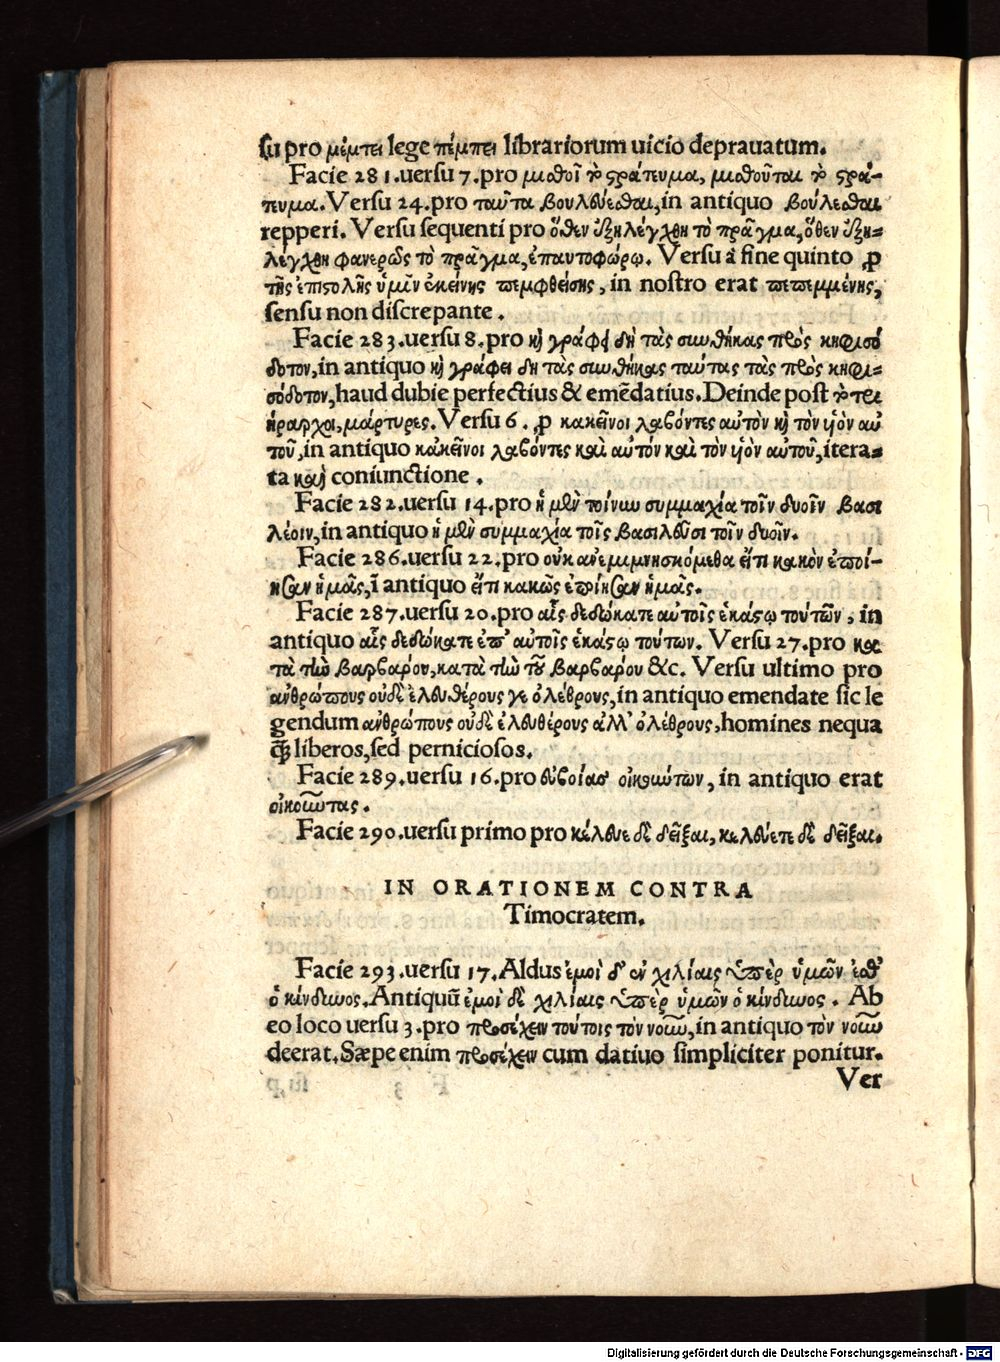 su pro μέμπει lege πέμπει librariorum uicio deprauatum.
Facie 281. uersu 7. pro μισθοῖ τὸ στράτευμα, μισθοῦται τὸ στρά-
τευμα. Versu 24. pro ταῦτα βουλεύεσθαι, in antiquo βούλεσθαι
repperi. Versu sequenti pro ὅθεν ἐξηλέγχθη τὸ πρᾶγμα, ὅθεν ἐξη=
λέγχθη φανερῶς τὸ πρᾶγμα, ἐπαυτοφώρῳ. Versu à fine quinto ꝓ
τῆς ἐπιστολῆς ὑμῖν ἐκείνης πεμφθείσης, in nostro erat πεπεμμένης,
sensu non discrepante.
Facie 283. uersu 8. pro καὶ γράφει δὴ τὰς συνθήκας πρὸς κηφισό
δοτον, in antiquo καὶ γράφει δὴ τὰς συνθήκας ταύτας τὰς πρὸς κηφι-
σόδοτον, haud dubie perfectius & emēdatius. Deinde post τὸ τει
ήραρχοι, μάρτυρες. Versu 6. ꝓ κακεῖνοι λαβόντες αὐτὸν καὶ τὸν υἱὸν αὐ
τοῦ, in antiquo κακεῖνοι λαβόντες καὶ αὐτόν καὶ τὸν υἱὸν αὐτοῦ, itera=
ta καὶ coniunctione.
Facie 282. uersu 14. pro ἡ μὲν τοίνυν συμμαχία τοῖν δυοῖν βασι
λέοιν, in antiquo ἡ μὲν συμμαχία τοῖς βασιλεῦσι τοῖν δυοῖν.
Facie 286. uersu 22. pro ουκ ανεμιμνησκόμεθα εἴτι κακὸν ἐποί-
ησαν ἡμᾶς, ī antiquo εἴτι κακῶς ἐποίησαν ἡμᾶς.
Facie 287. uersu 20. pro αἷς δεδώκατε αὐτοῖς ἑκάστῳ τούτῶν, in
antiquo αἷς δεδώκατε ἐπ' αὐτοῖς ἑκάστῳ τούτων. Versu 27. pro κα
τὰ τὴν βαρβάρου, κατὰ τὴν τοῦ βαρβάρου &c. Versu ultimo pro
ανθρώπους οὐδὲ ἐλευθέρους γε ὀλέθρους, in antiquo emendate sic le
gendum ανθρώπους οὐδὲ ἐλευθέρους αλλ' ὀλέθρους, homines nequa
q̃ liberos, sed perniciosos.
Facie 289. uersu 16. pro εὐβοίας οἰκούντων, in antiquo erat
οἰκοῦντας.
Facie 290. uersu primo pro κέλευε δὲ δεῖξαι, κελεύετε δὲ δεῖξαι.
IN ORATIONEM CONTRA
Timocratem.
Facie 293. uersu 17. Aldus ἐμοὶ δ' ἐν χιλίαις ὑπὲρ ὑμῶν ἐσθ'
ὁ κίνδυνος. Antiquū ἐμοὶ δὲ χιλίαις ὑπὲρ ὑμῶν ὁ κίνδυνος. Ab
eo loco uersu 3. pro προσέχειν τούτοις τὸν νοῦν, in antiquo τὸν νοῦν
deerat. Sæpe enim προσέχειν cum datiuo simpliciter ponitur.
Ver
Digitalisierung gefördert durch die Deutsche Forschungsgemeinschaft - DFG